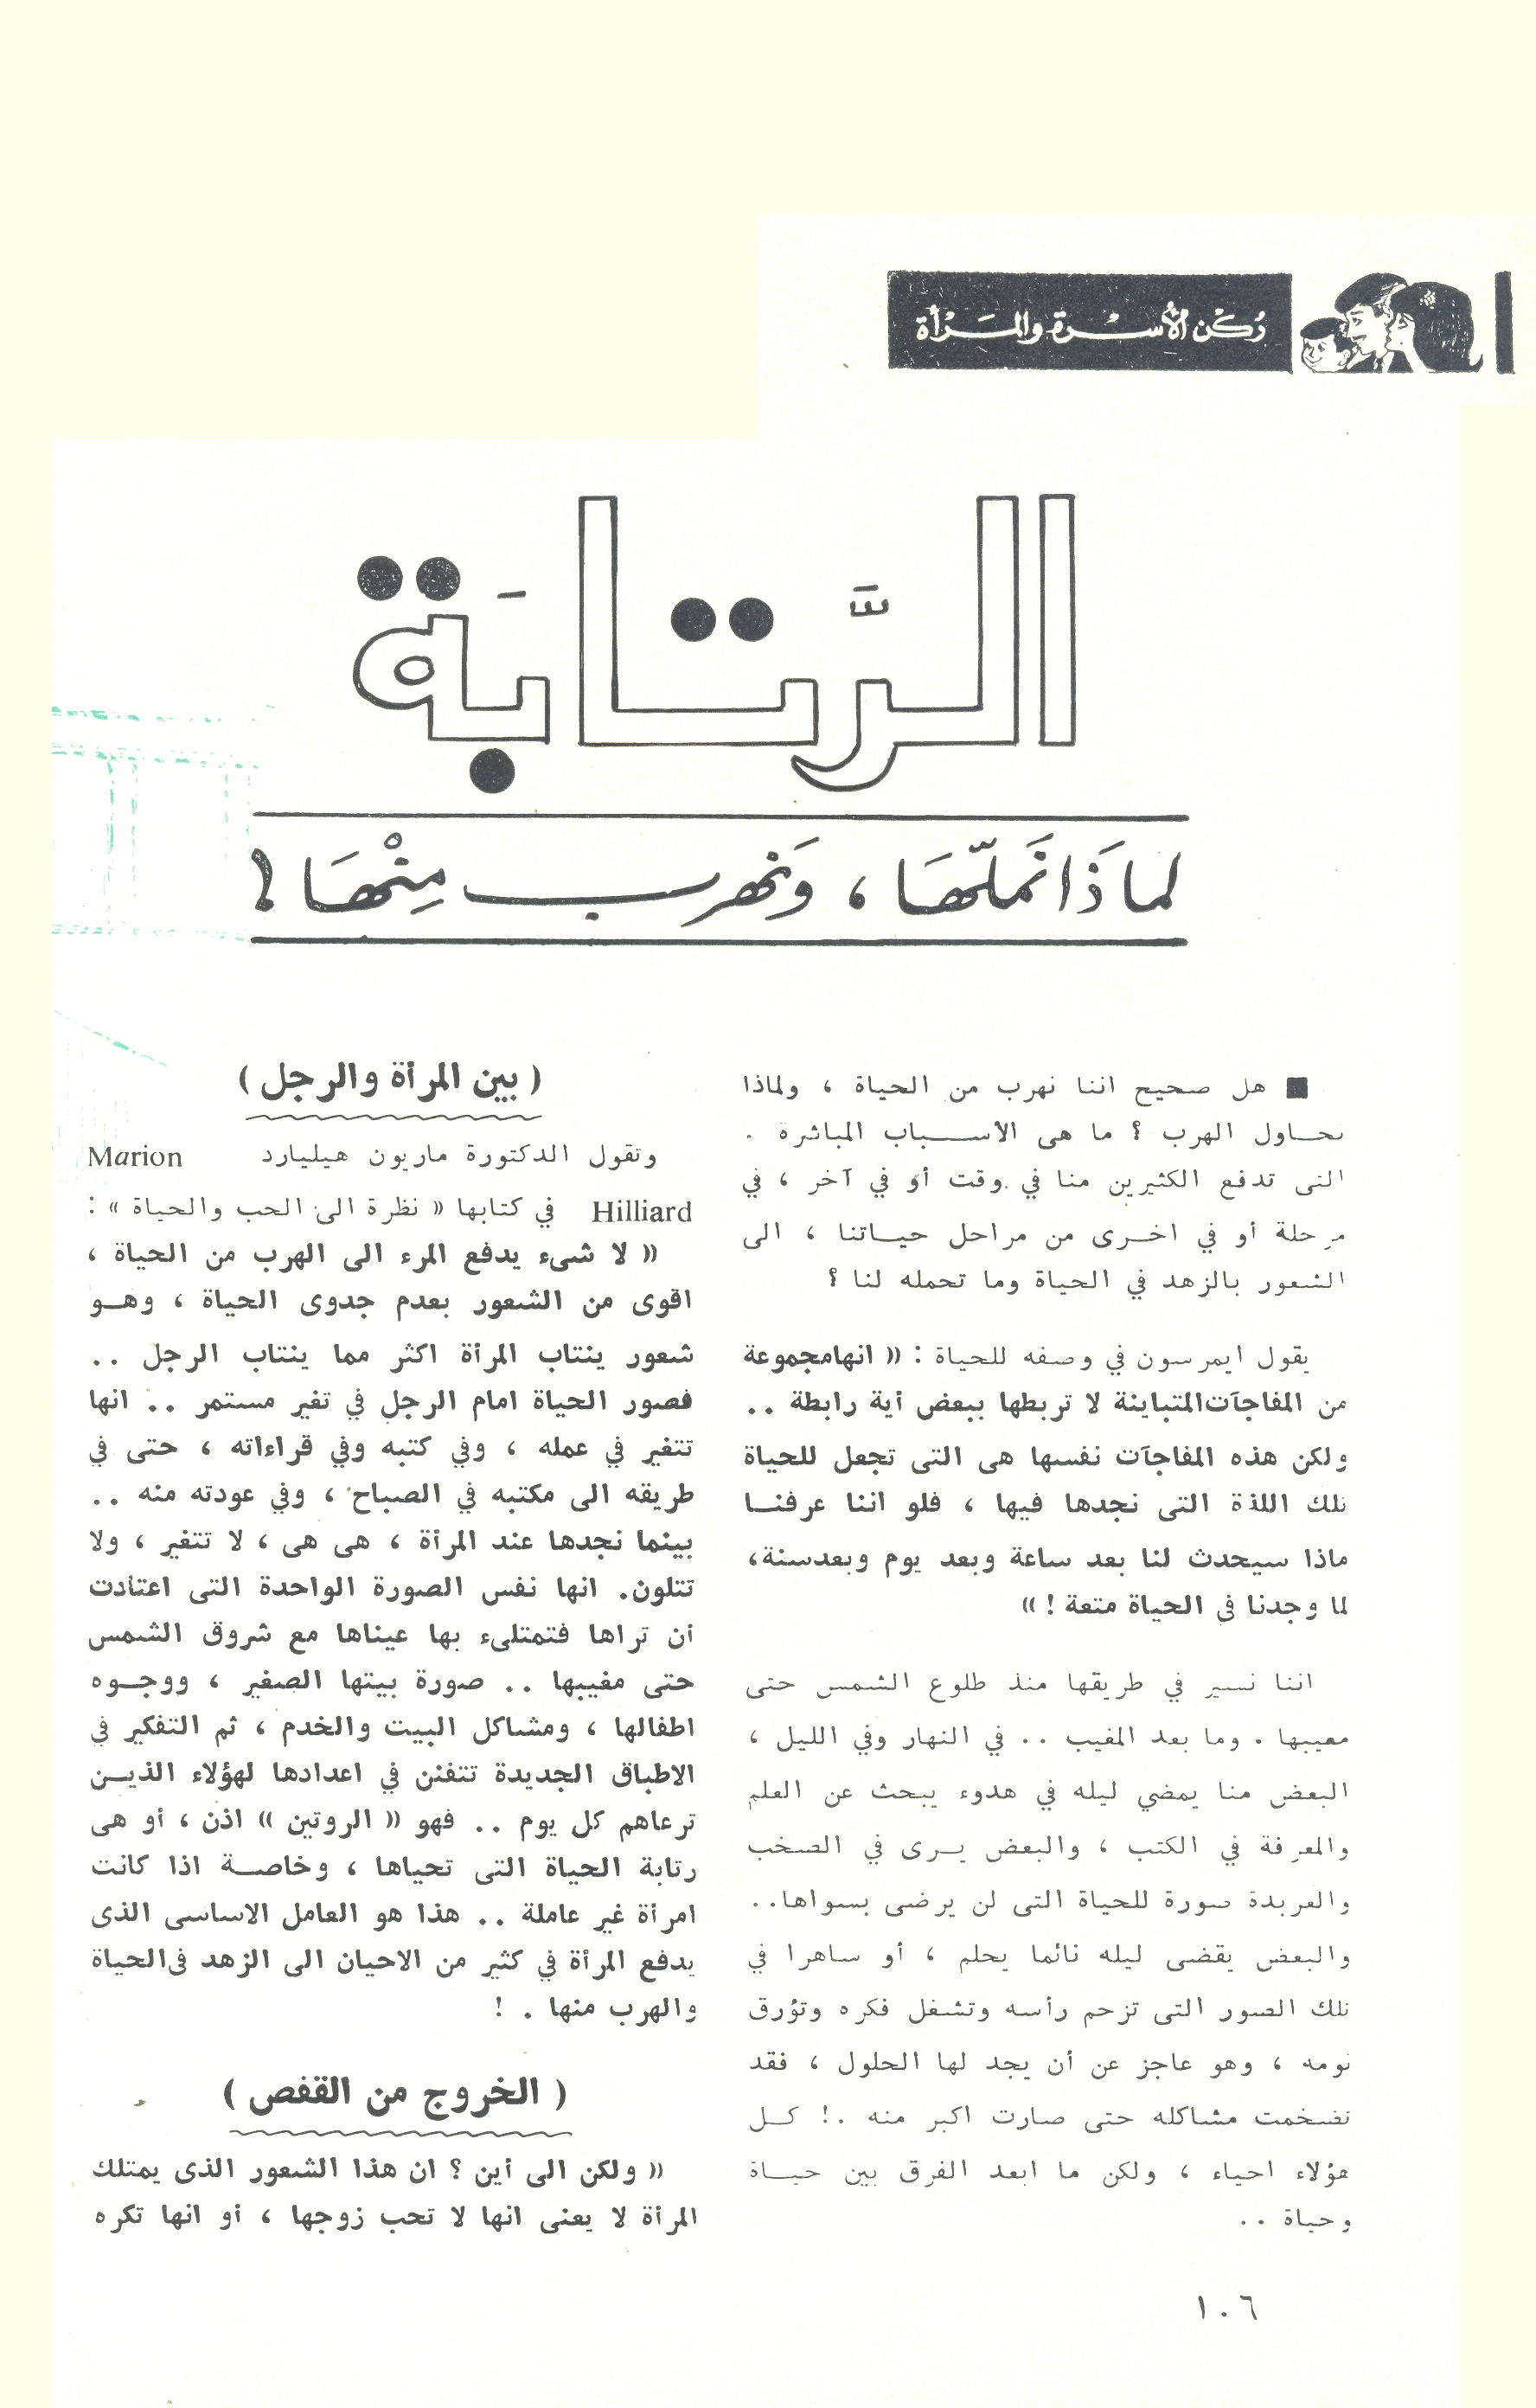 رُكْن الأُسْرة والمَرْأة
الرَّتابَة
لماذَا نَملّهَا ، وَنهرب مِنْهَا !
■ هل صحيح اننا نهرب من الحياة ، ولماذا
نحاول الهرب ؟ ما هى الاسباب المباشرة .
التى تدفع الكثيرين منا في وقت أو في آخر ، في
مرحلة أو في اخرى من مراحل حياتنا ، الى
الشعور بالزهد في الحياة وما تحمله لنا ؟
يقول ايمرسون في وصفه للحياة : « انهامجموعة
من المفاجآت المتباينة لا تربطها ببعض أية رابطة ..
ولكن هذه المفاجآت نفسها هى التى تجعل للحياة
تلك اللذة التى نجدها فيها ، فلو اننا عرفنا
ماذا سيحدث لنا بعد ساعة وبعد يوم وبعدسنة،
لما وجدنا في الحياة متعة ! »
اننا نسير في طريقها منذ طلوع الشمس حتى
مغيبها . وما بعد المغيب .. في النهار وفي الليل ،
البعض منا يمضي ليله في هدوء يبحث عن العلم
والمعرفة في الكتب ، والبعض يرى في الصخب
والعربدة صورة للحياة التى لن يرضى بسواها..
والبعض يقضى ليله نائما يحلم ، أو ساهرا في
تلك الصور التى تزحم رأسه وتشغل فكره وتؤرق
نومه ، وهو عاجز عن أن يجد لها الحلول ، فقد
تضخمت مشاكله حتى صارت اكبر منه .! كل
هؤلاء احياء ، ولكن ما ابعد الفرق بين حياة
وحياة ..
( بين المرأة والرجل )
وتقول الدكتورة ماريون هيليارد Marion
Hilliard في كتابها « نظرة الى الحب والحياة » :
« لا شىء يدفع المرء الى الهرب من الحياة ،
اقوى من الشعور بعدم جدوى الحياة ، وهو
شعور ينتاب المرأة اكثر مما ينتاب الرجل ..
فصور الحياة امام الرجل في تغير مستمر .. انها
تتغير في عمله ، وفي كتبه وفي قراءاته ، حتى في
طريقه الى مكتبه في الصباح ، وفي عودته منه ..
بينما نجدها عند المرأة ، هى هى ، لا تتغير ، ولا
تتلون. انها نفس الصورة الواحدة التى اعتادت
أن تراها فتمتلىء بها عيناها مع شروق الشمس
حتى مغيبها .. صورة بيتها الصغير ، ووجوه
اطفالها ، ومشاكل البيت والخدم ، ثم التفكير في
الاطباق الجديدة تتفنن في اعدادها لهؤلاء الذين
ترعاهم كل يوم .. فهو « الروتين » اذن ، أو هى
رتابة الحياة التى تحياها ، وخاصة اذا كانت
امرأة غير عاملة .. هذا هو العامل الاساسى الذى
يدفع المرأة في كثير من الاحيان الى الزهد فى الحياة
والهرب منها . !
( الخروج من القفص )
« ولكن الى أين ؟ ان هذا الشعور الذى يمتلك
المرأة لا يعنى انها لا تحب زوجها ، أو انها تكره
١٠٦